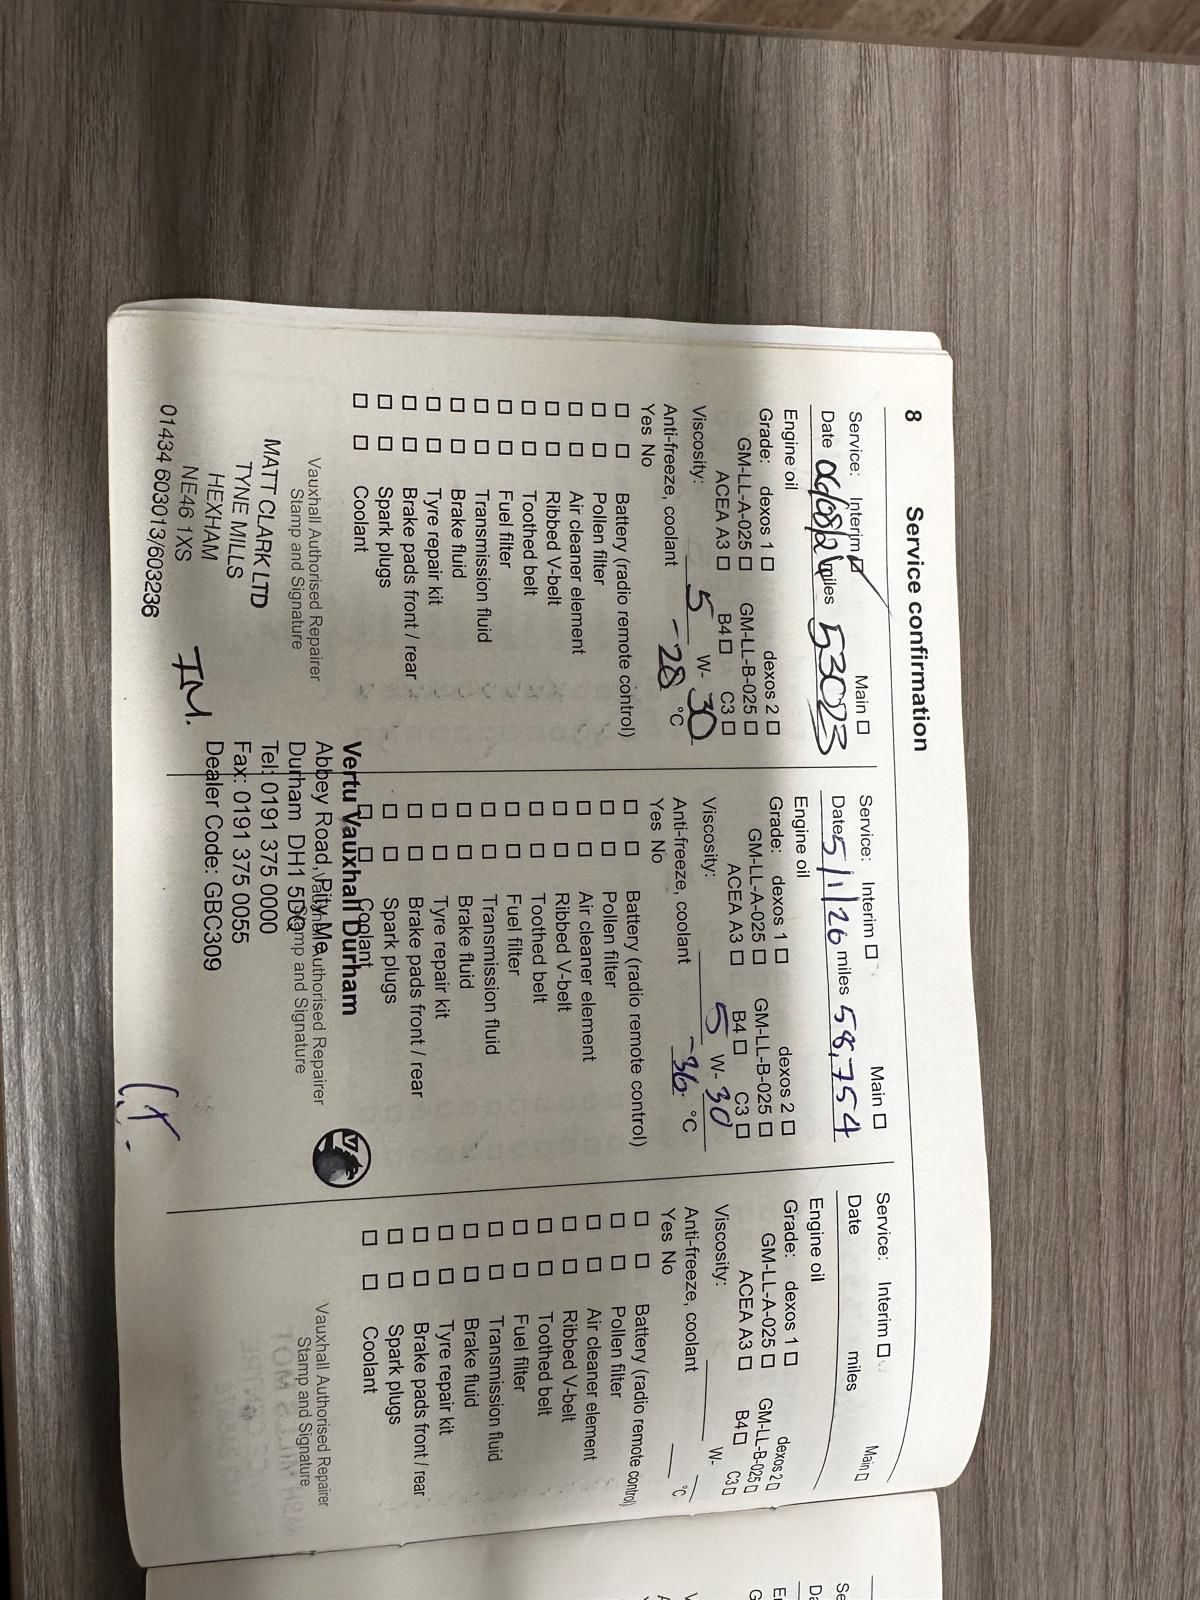 8 Service confirmation
Service: Interim Main
Date miles 53023
Engine oil
Grade: dexos 1 dexos 2
GM-LL-A-025 GM-LL-B-025
ACEA A3 B4 C3
Viscosity: 5 W- 30
Anti-freeze, coolant -28 °C
Yes No
Battery (radio remote control)
Pollen filter
Air cleaner element
Ribbed V-belt
Toothed belt
Fuel filter
Transmission fluid
Brake fluid
Tyre repair kit
Brake pads front / rear
Spark plugs
Coolant
Vauxhall Authorised Repairer
Stamp and Signature
MATT CLARK LTD
TYNE MILLS
HEXHAM
NE46 1XS
01434 603013/603236
Service: Interim Main
Date 5/1/26 miles 58,754
Engine oil
Grade: dexos 1 dexos 2
GM-LL-A-025 GM-LL-B-025
ACEA A3 B4 C3
Viscosity: 5 W- 30
Anti-freeze, coolant -36 °C
Yes No
Battery (radio remote control)
Pollen filter
Air cleaner element
Ribbed V-belt
Toothed belt
Fuel filter
Transmission fluid
Brake fluid
Tyre repair kit
Brake pads front / rear
Spark plugs
Coolant
Vertu Vauxhall Durham
Vauxhall Authorised Repairer
Abbey Road, Pity Me
Stamp and Signature
Durham DH1 5DQ
Tel: 0191 375 0000
Fax: 0191 375 0055
Dealer Code: GBC309
Service: Interim Main
Date miles
Engine oil
Grade: dexos 1 dexos 2
GM-LL-A-025 GM-LL-B-025
ACEA A3 B4 C3
Viscosity: W-
Anti-freeze, coolant °C
Yes No
Battery (radio remote control)
Pollen filter
Air cleaner element
Ribbed V-belt
Toothed belt
Fuel filter
Transmission fluid
Brake fluid
Tyre repair kit
Brake pads front / rear
Spark plugs
Coolant
Vauxhall Authorised Repairer
Stamp and Signature